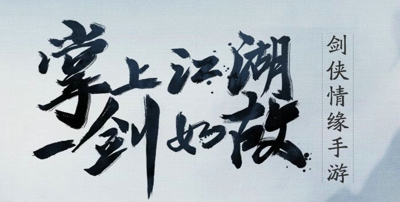 掌上江湖
一剑如故
剑侠情缘手游